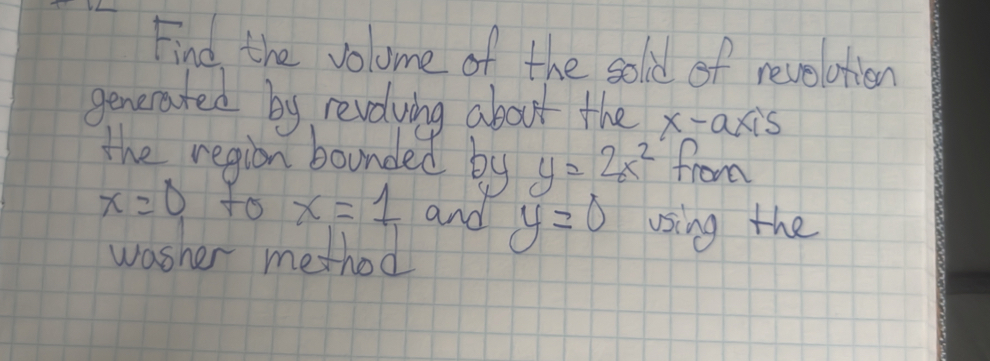 Find the volume of the solid of revolution
generated by revolving about the x-axis
the region bounded by y = 2x² from
x = 0 to x = 1 and y = 0 using the
washer method